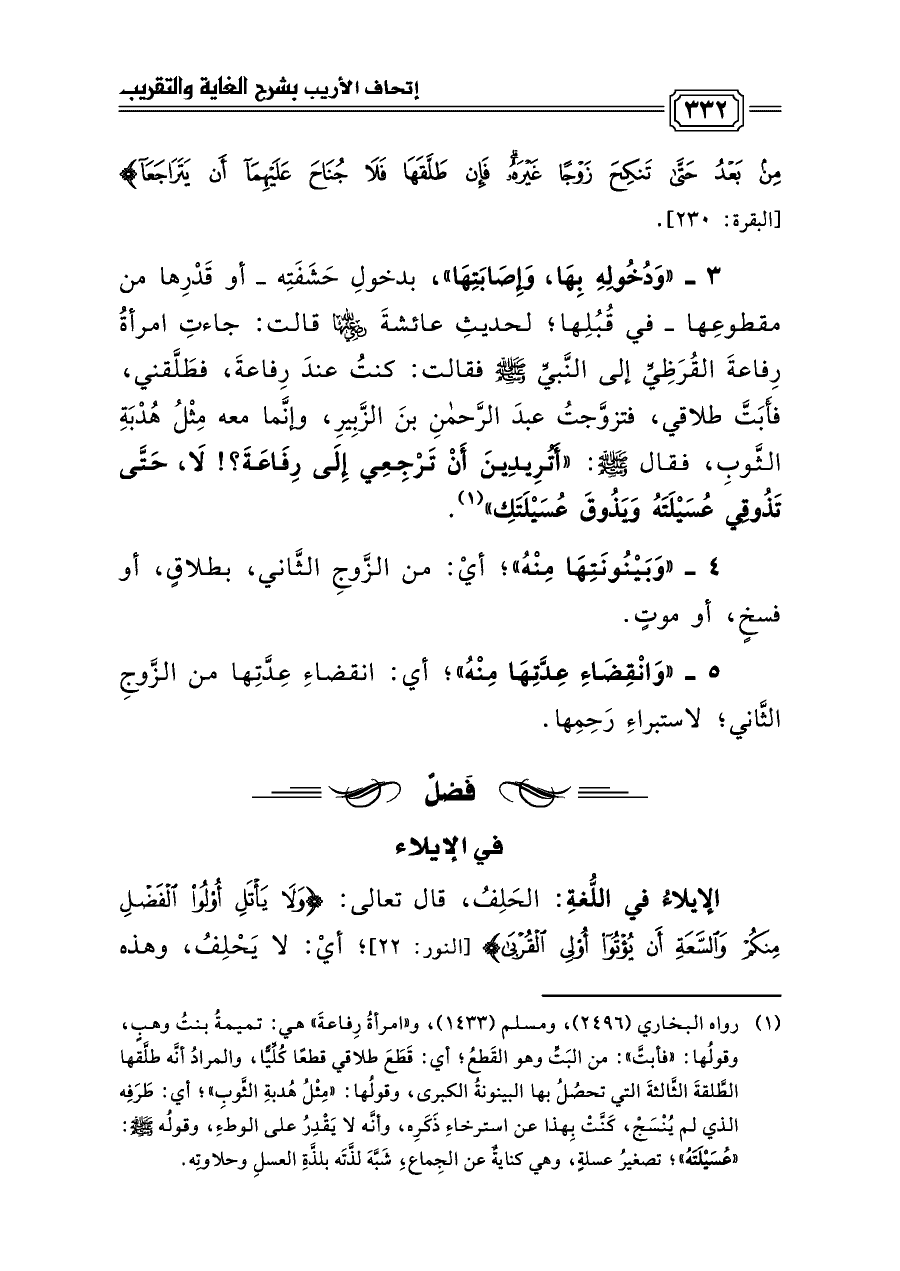 إتحاف الأريب بشرح الغاية والتقريب
٣٣٢
مِنۢ بَعْدُ حَتَّىٰ تَنكِحَ زَوْجًا غَيْرَهُۥۗ فَإِن طَلَّقَهَا فَلَا جُنَاحَ عَلَيْهِمَآ أَن يَتَرَاجَعَآ﴾
[البقرة: ٢٣٠].
٣ ـ «وَدُخُولِهِ بِهَا، وَإِصَابَتِهَا»، بدخولِ حَشَفَتِه ـ أو قَدْرِها من
مقطوعِها ـ في قُبُلِها؛ لحديثِ عائشةَ رضي الله عنها قالت: جاءتِ امرأةُ
رِفاعةَ القُرَظِيِّ إلى النَّبيِّ ﷺ فقالت: كنتُ عندَ رِفاعةَ، فطَلَّقني،
فأَبَتَّ طلاقي، فتزوَّجتُ عبدَ الرَّحمٰنِ بنَ الزَّبِيرِ، وإنَّما معه مِثْلُ هُدْبَةِ
الثَّوبِ، فقال ﷺ: «أَتُرِيدِينَ أَنْ تَرْجِعِي إِلَى رِفَاعَةَ؟! لَا، حَتَّى
تَذُوقِي عُسَيْلَتَهُ وَيَذُوقَ عُسَيْلَتَكِ»(١).
٤ ـ «وَبَيْنُونَتِهَا مِنْهُ»؛ أيْ: من الزَّوجِ الثَّاني، بطلاقٍ، أو
فسخٍ، أو موتٍ.
٥ ـ «وَانْقِضَاءِ عِدَّتِهَا مِنْهُ»؛ أي: انقضاءِ عِدَّتِها من الزَّوجِ
الثَّاني؛ لاستبراءِ رَحِمِها.
فَصْلٌ
في الإيلاء
الإيلاءُ في اللُّغةِ: الحَلِفُ، قال تعالى: ﴿وَلَا يَأْتَلِ أُوْلُواْ ٱلْفَضْلِ
مِنكُمْ وَٱلسَّعَةِ أَن يُؤْتُوٓاْ أُوْلِي ٱلْقُرْبَىٰ﴾ [النور: ٢٢]؛ أيْ: لا يَحْلِفُ، وهذه
(١) رواه البخاري (٢٤٩٦)، ومسلم (١٤٣٣)، و«امرأةُ رِفاعةَ» هي: تميمةُ بنتُ وهبٍ،
وقولُها: «فأبتَّ»: من البَتِّ وهو القَطعُ؛ أي: قَطَعَ طلاقي قطعًا كُلِّيًّا، والمرادُ أنَّه طلَّقها
الطَّلقةَ الثَّالثةَ التي تحصُلُ بها البينونةُ الكبرى، وقولُها: «مِثْلُ هُدبةِ الثَّوبِ»؛ أي: طَرَفِه
الذي لم يُنْسَجْ، كَنَّتْ بِهذا عن استرخاءِ ذَكَرِه، وأنَّه لا يَقْدِرُ على الوطءِ، وقوله ﷺ:
«عُسَيْلَتَهُ»؛ تصغيرُ عسلةٍ، وهي كنايةٌ عن الجِماعِ؛ شَبَّهَ لذَّتَه بلذَّةِ العسلِ وحلاوتِه.